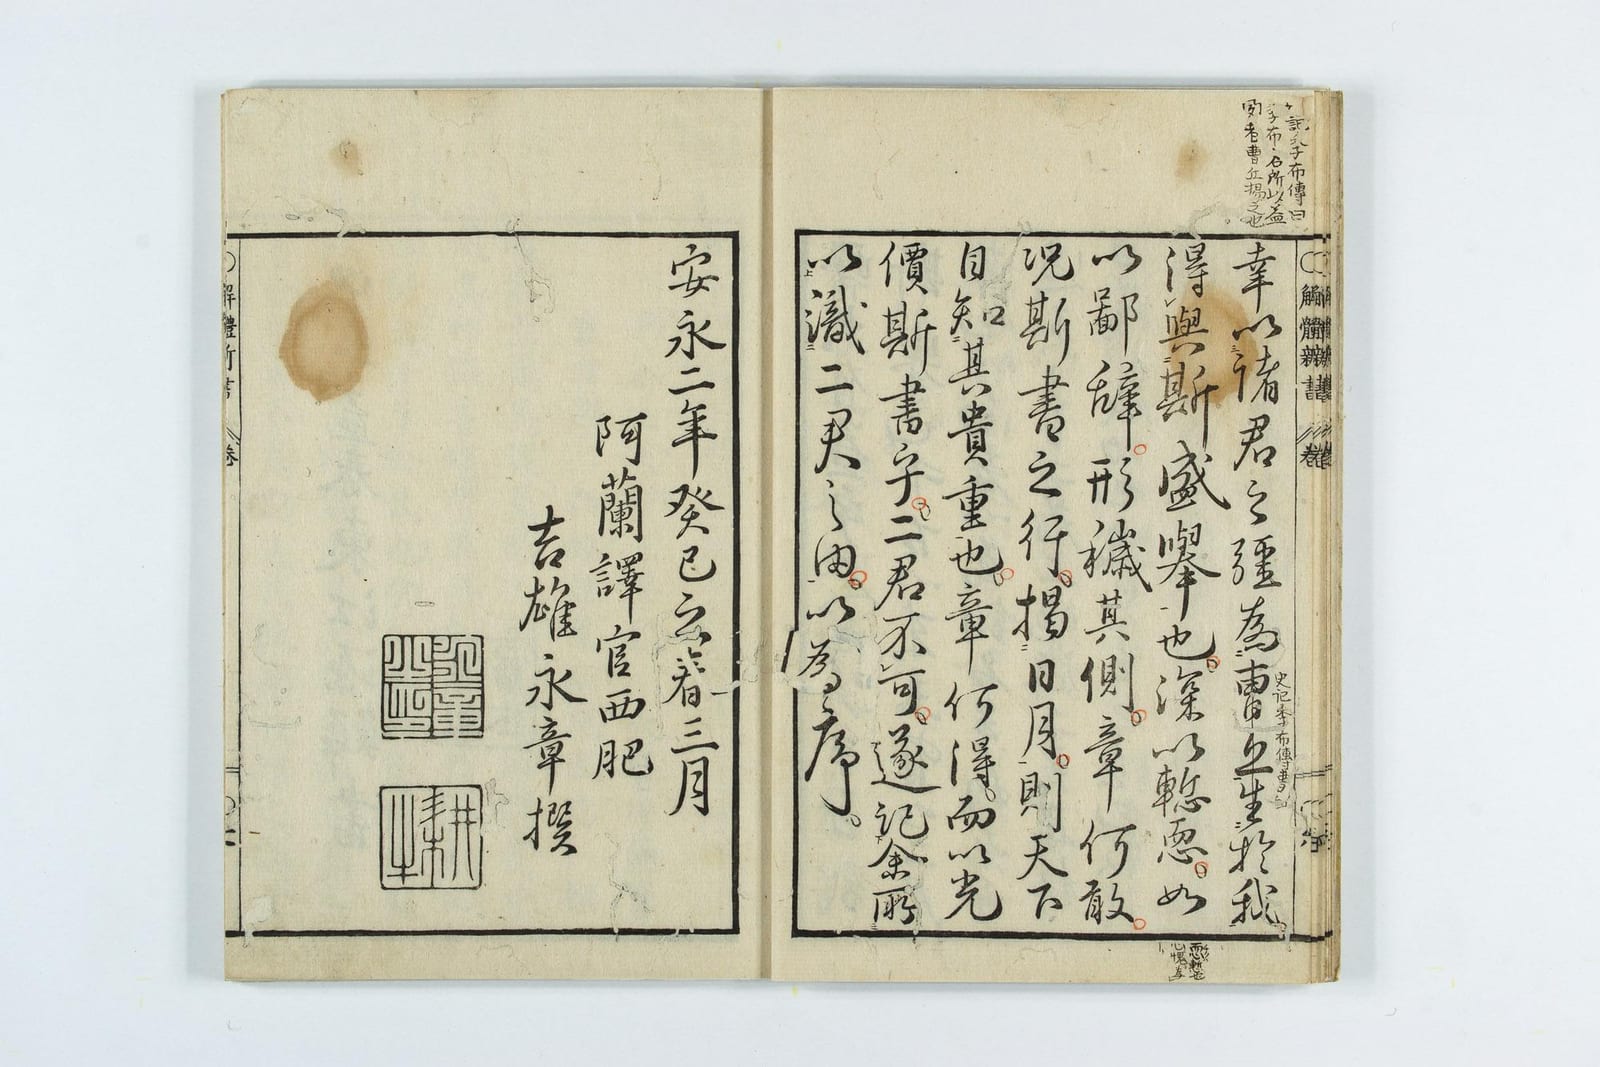 幸以諸君之彊為曹丘生於我
得與斯盛擧也深以慙恧如
以鄙辭形穢其側章何敢
况斯書之行揭日月則天下
自知其貴重也章何得而以光
價斯書乎二君不可遂記余所
以識二君之由以為序
安永二年癸巳之春三月
阿蘭譯官西肥
吉雄永章撰
解體新書
卷
季布傳曰
季布名所以益
聞者曹丘揚之也
史記季布傳曹丘
解體新書
卷